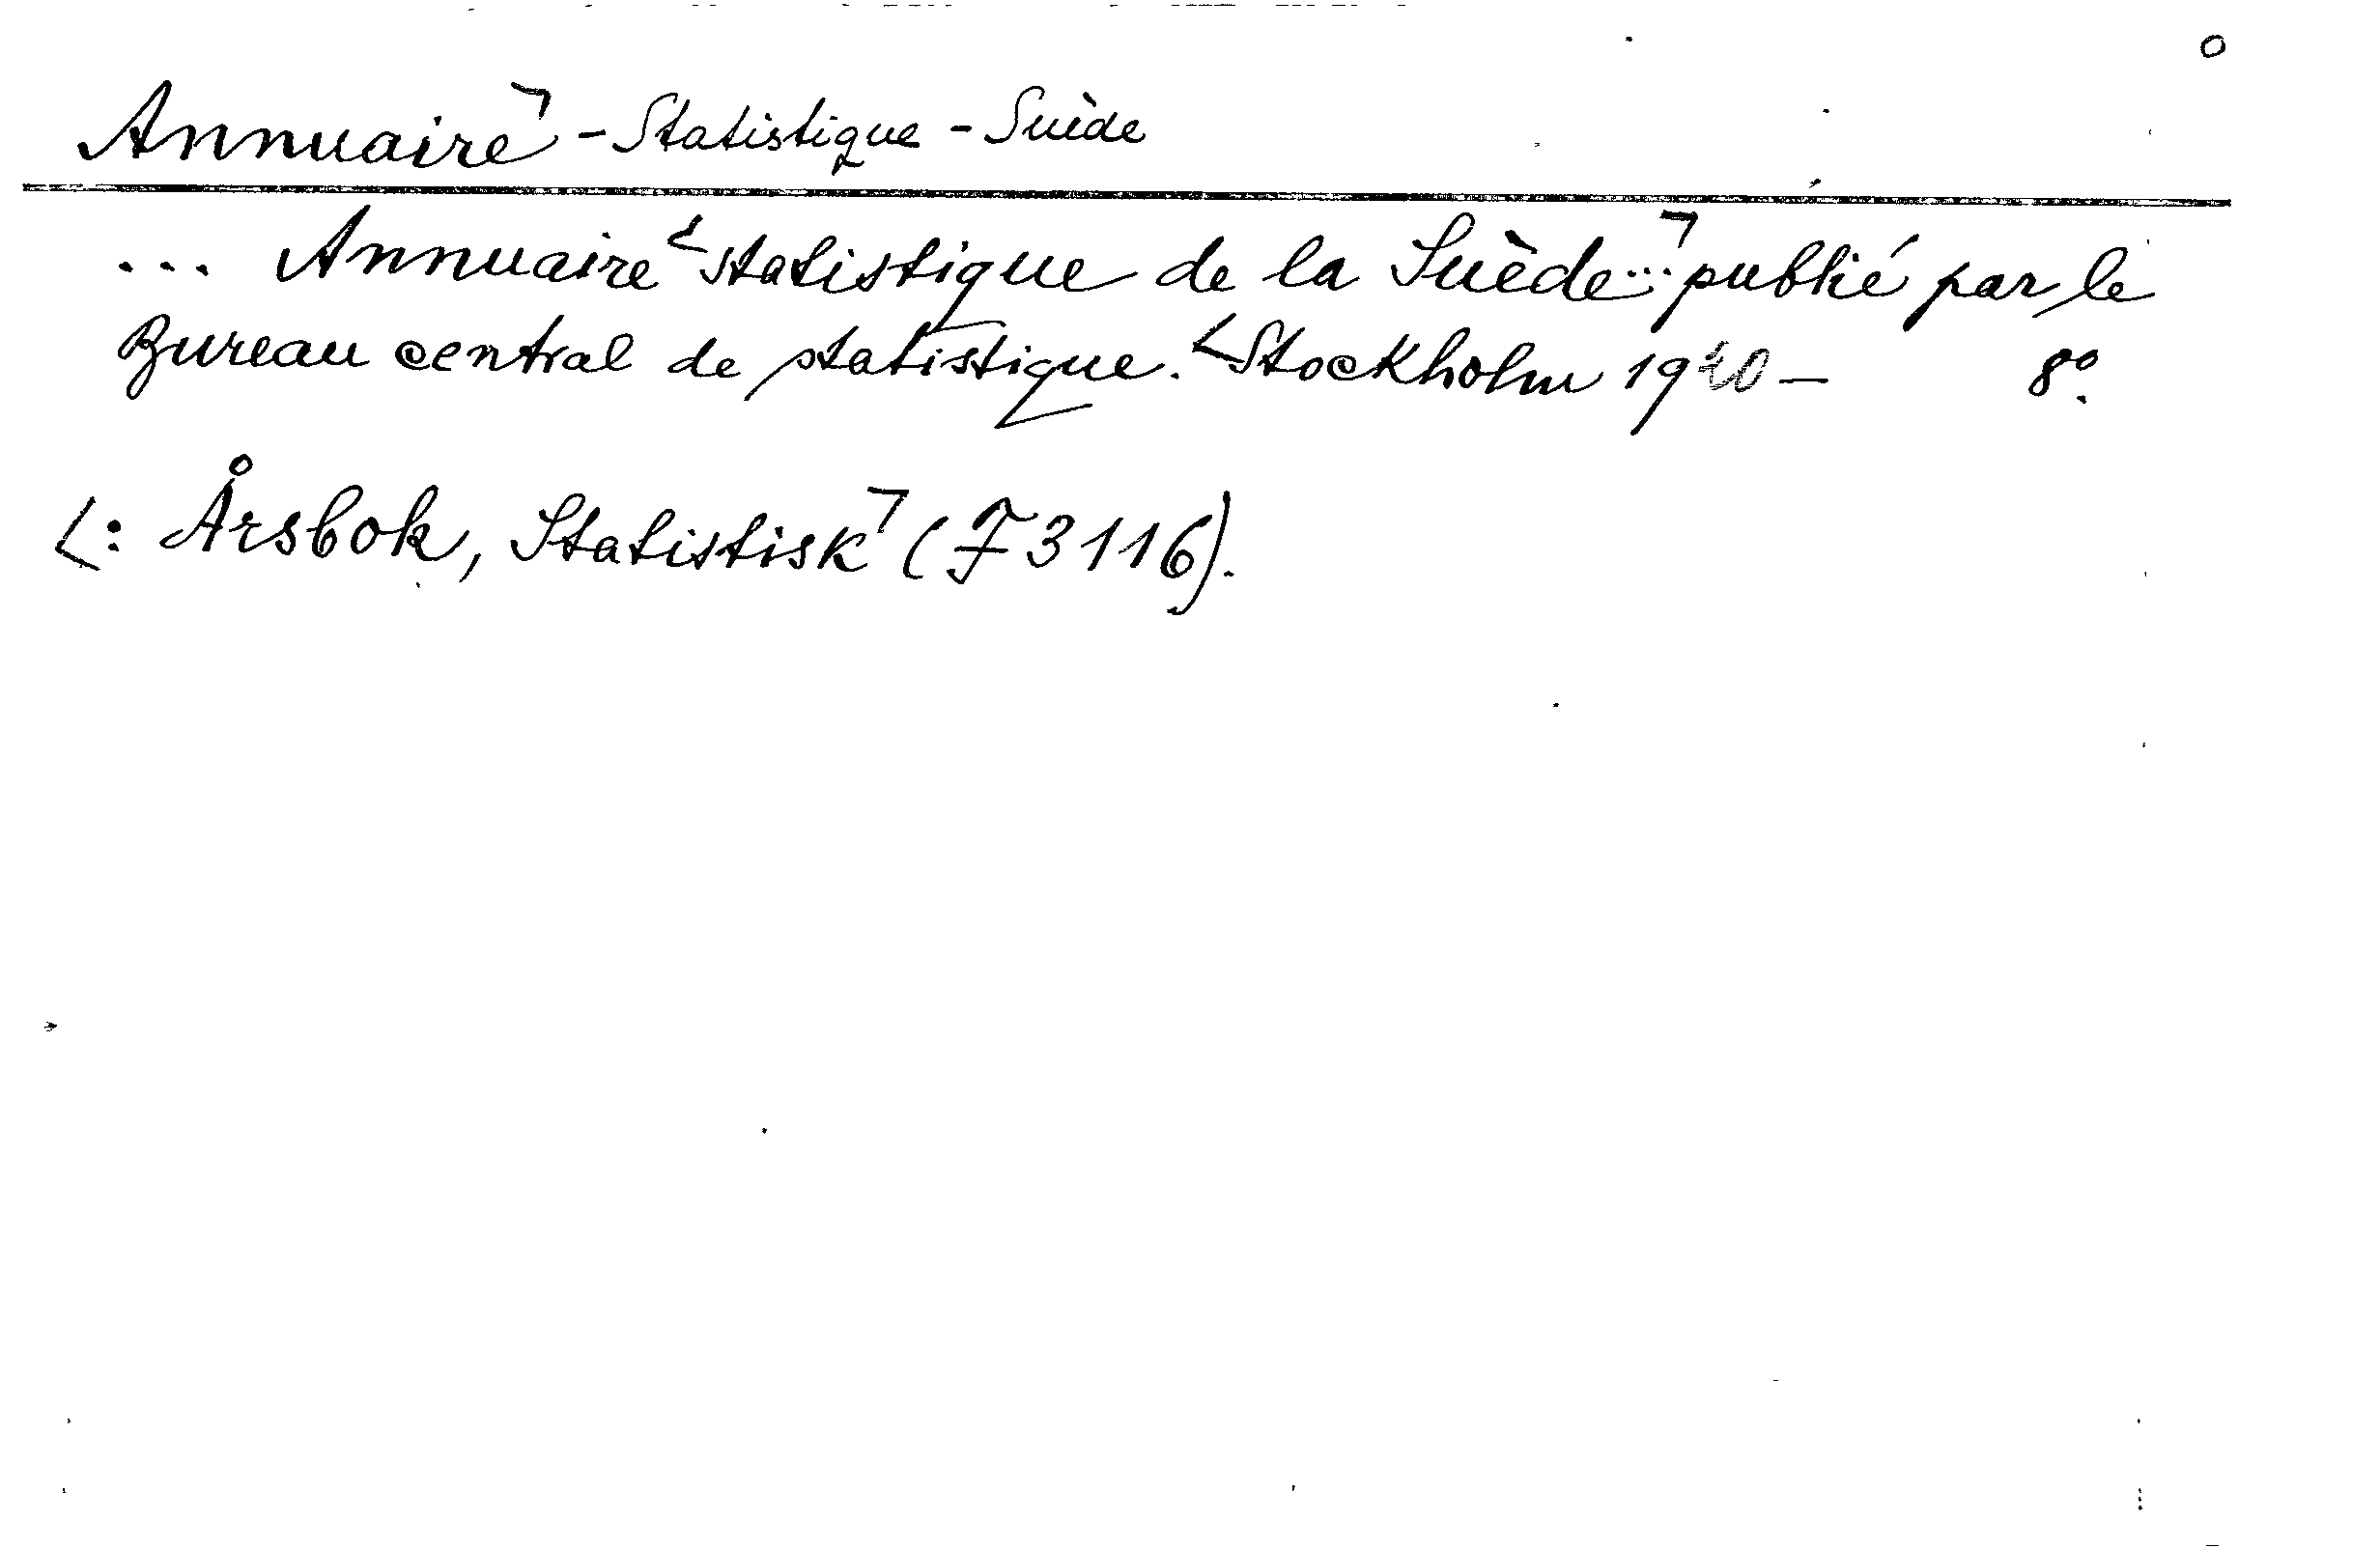 Annuaire - Statistique - Suède
... Annuaire statistique de la Suède... publié par le
Bureau central de statistique. Stockholm 1920 - 8º.
<: Årsbok, Statistisk (F 3116).